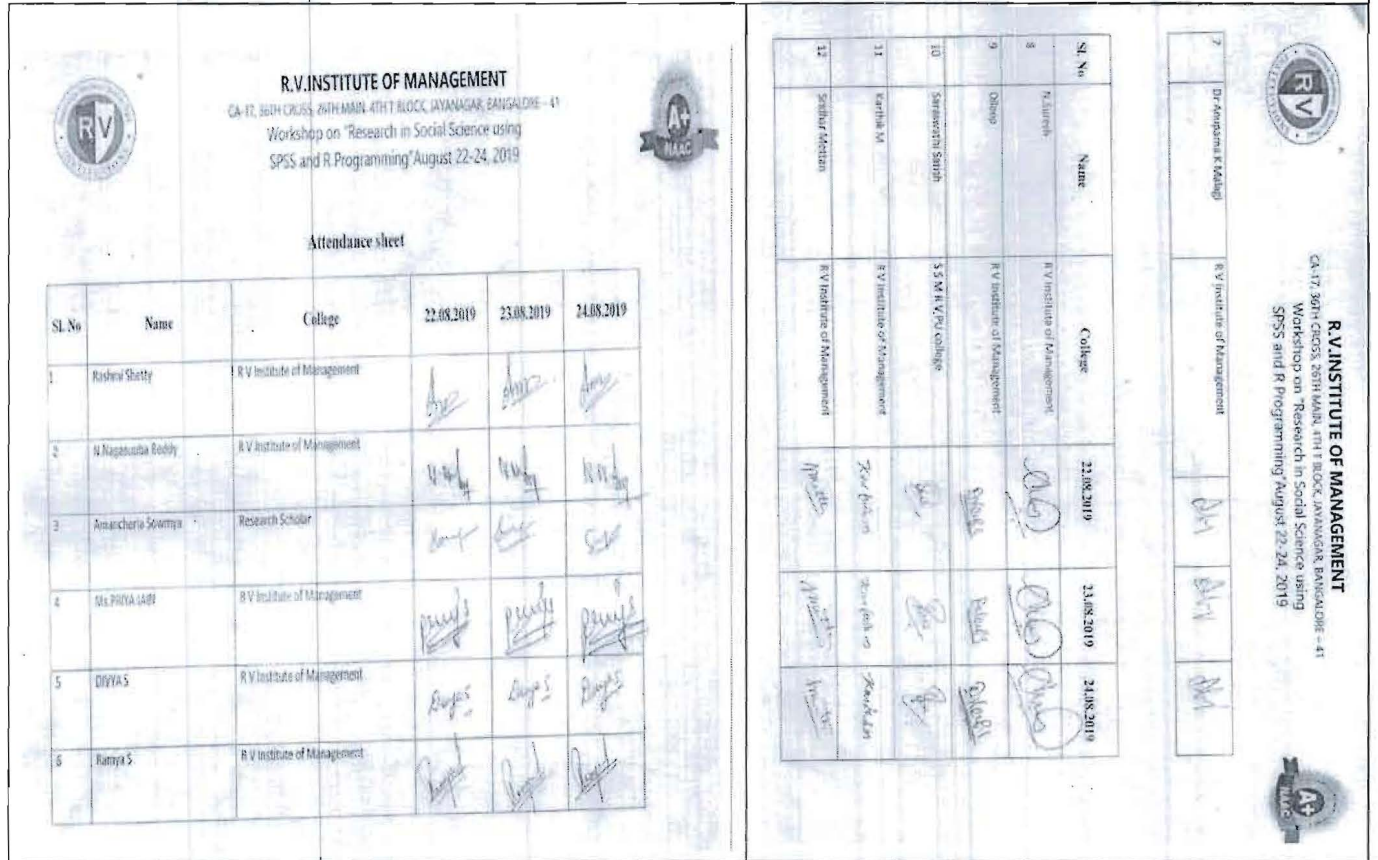 RV
R.V.INSTITUTE OF MANAGEMENT
CA-17, 36TH CROSS, 26TH MAIN, 4TH T BLOCK, JAYANAGAR, BANGALORE – 41
Workshop on "Research in Social Science using
SPSS and R Programming"August 22-24, 2019
A+
NAAC
Attendance sheet
SL No Name College 22.08.2019 23.08.2019 24.08.2019
1 Rashmi Shetty R V Institute of Management
2 N Nagasubba Reddy R V Institute of Management
3 Amancherla Sowmya Research Scholar
4 Ms.PRIYA JAIN R V Institute of Management
5 DIVYA S R V Institute of Management Divya S Divya S Divya S
6 Ramya S R V Institute of Management
RV
R.V.INSTITUTE OF MANAGEMENT
CA-17, 36TH CROSS, 26TH MAIN, 4TH T BLOCK, JAYANAGAR, BANGALORE – 41
Workshop on "Research in Social Science using
SPSS and R Programming"August 22-24, 2019
A+
NAAC
7 Dr Anupama K Malagi R V Institute of Management
SL No Name College 22.08.2019 23.08.2019 24.08.2019
8 N.Suresh R V Institute of Management
9 Dileep R V Institute of Management
10 Saraswathi Satish S S M R V PU college
11 Karthik M R V Institute of Management
12 Sridhar Mettan R V Institute of Management